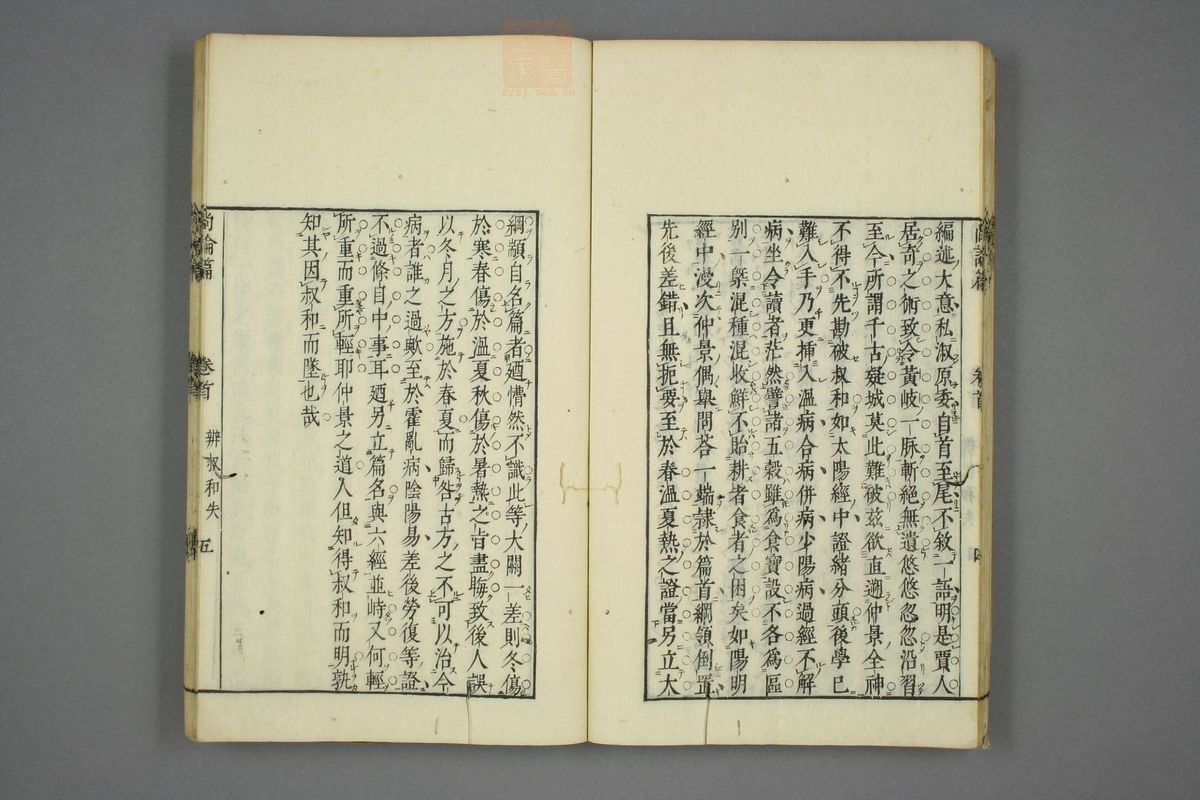 尚論篇
卷首
編述大意私淑原委自首至尾不敘一語明是賈人
居奇之術致令黃岐一脉斬絕無遺悠悠忽忽沿習
至今所謂千古疑城莫此難破茲欲直遡仲景全神
不得不先勘破叔和如太陽經中證緒分頭後學已
難入手乃更揷入溫病合病併病少陽病過經不解
病坐令讀者茫然譬諸五穀雖為食寶設不各為區
别一槩混種混收鮮不貽耕者食者之困矣如陽明
經中漫次仲景偶舉問荅一端隷於篇首綱領倒置
先後差錯且無扼要至於春溫夏熱之證當另立大
綱顓自名篇者廼懵然不識此等大關一差則冬傷
於寒春傷於溫夏秋傷於暑熱之旨盡晦致後人誤
以冬月之方施於春夏而歸咎古方之不可以治今
病者誰之過歟至於霍亂病陰陽易差後勞復等證
不過條目中事耳廼另立篇名與六經並峙又何輕
所重而重所輕耶仲景之道人但知得叔和而明孰
知其因叔和而墜也哉
尚論篇
卷首
辨叔和失
五
zysj.com.cn